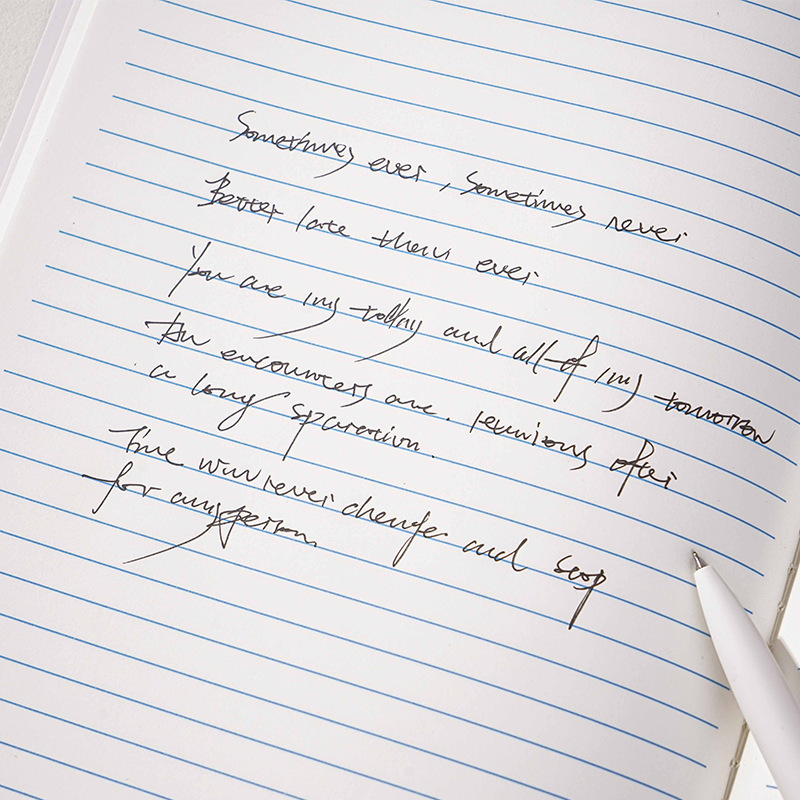 Sometimes ever, Sometimes never
Better late then ever
You are my today and all of my tomorrow
encounters are. reunions after
a long sparation.
Time will never change and stop
for any person.